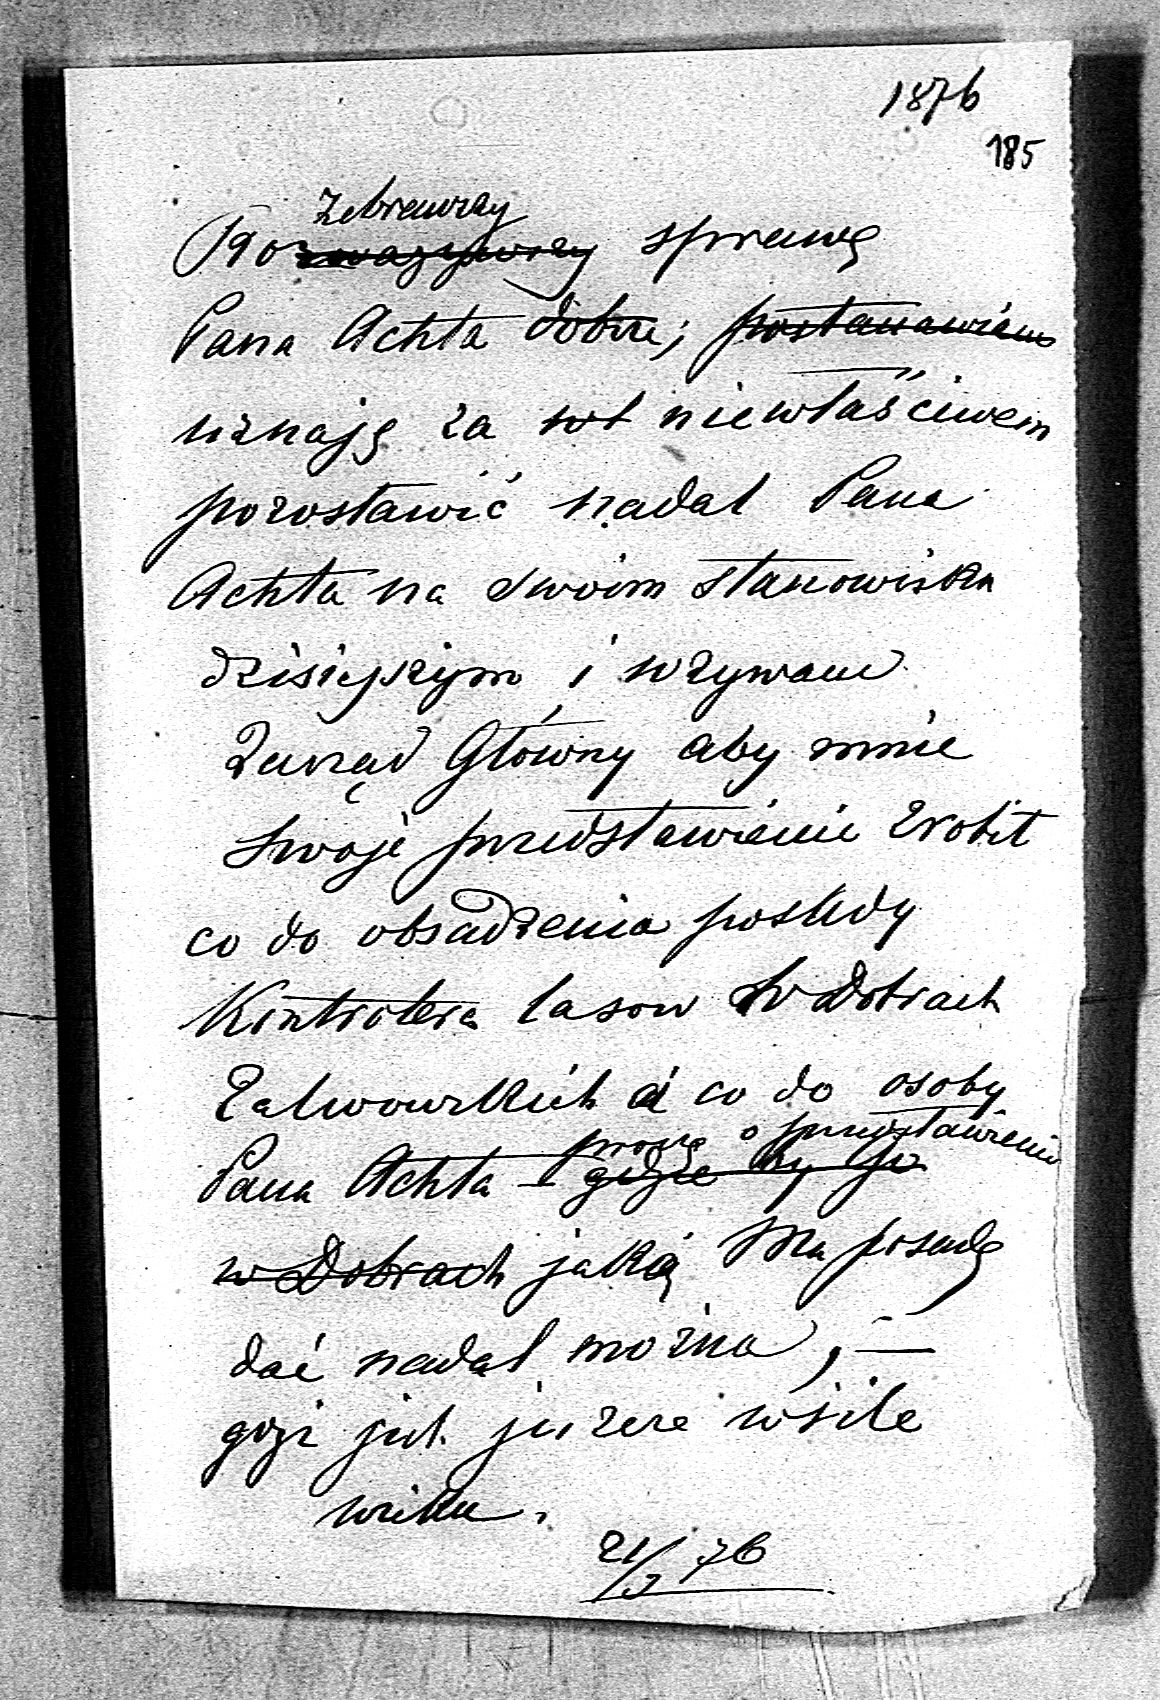 1876
185
Zebrawszy
Rozważywszy sprawę
Pana Achta dobrze; postanawiam
uznaję za wł niewłaściwem
pozostawić nadal Pana
Achta na swoim stanowisku
dzisiejszym i wzywam
Zarząd Główny aby mnie
swoje przedstawienie zrobił
co do obsadzenia posady
Kontrolera lasow w Dobrach
Zalwowskich a co do osoby
proszę o przedstawienie
Pana Achta gdzie by go
w Dobrach jaką Mu posadę
dać nadal można, —
gdyż jest jeszcze w sile
wieku.
21/3 76